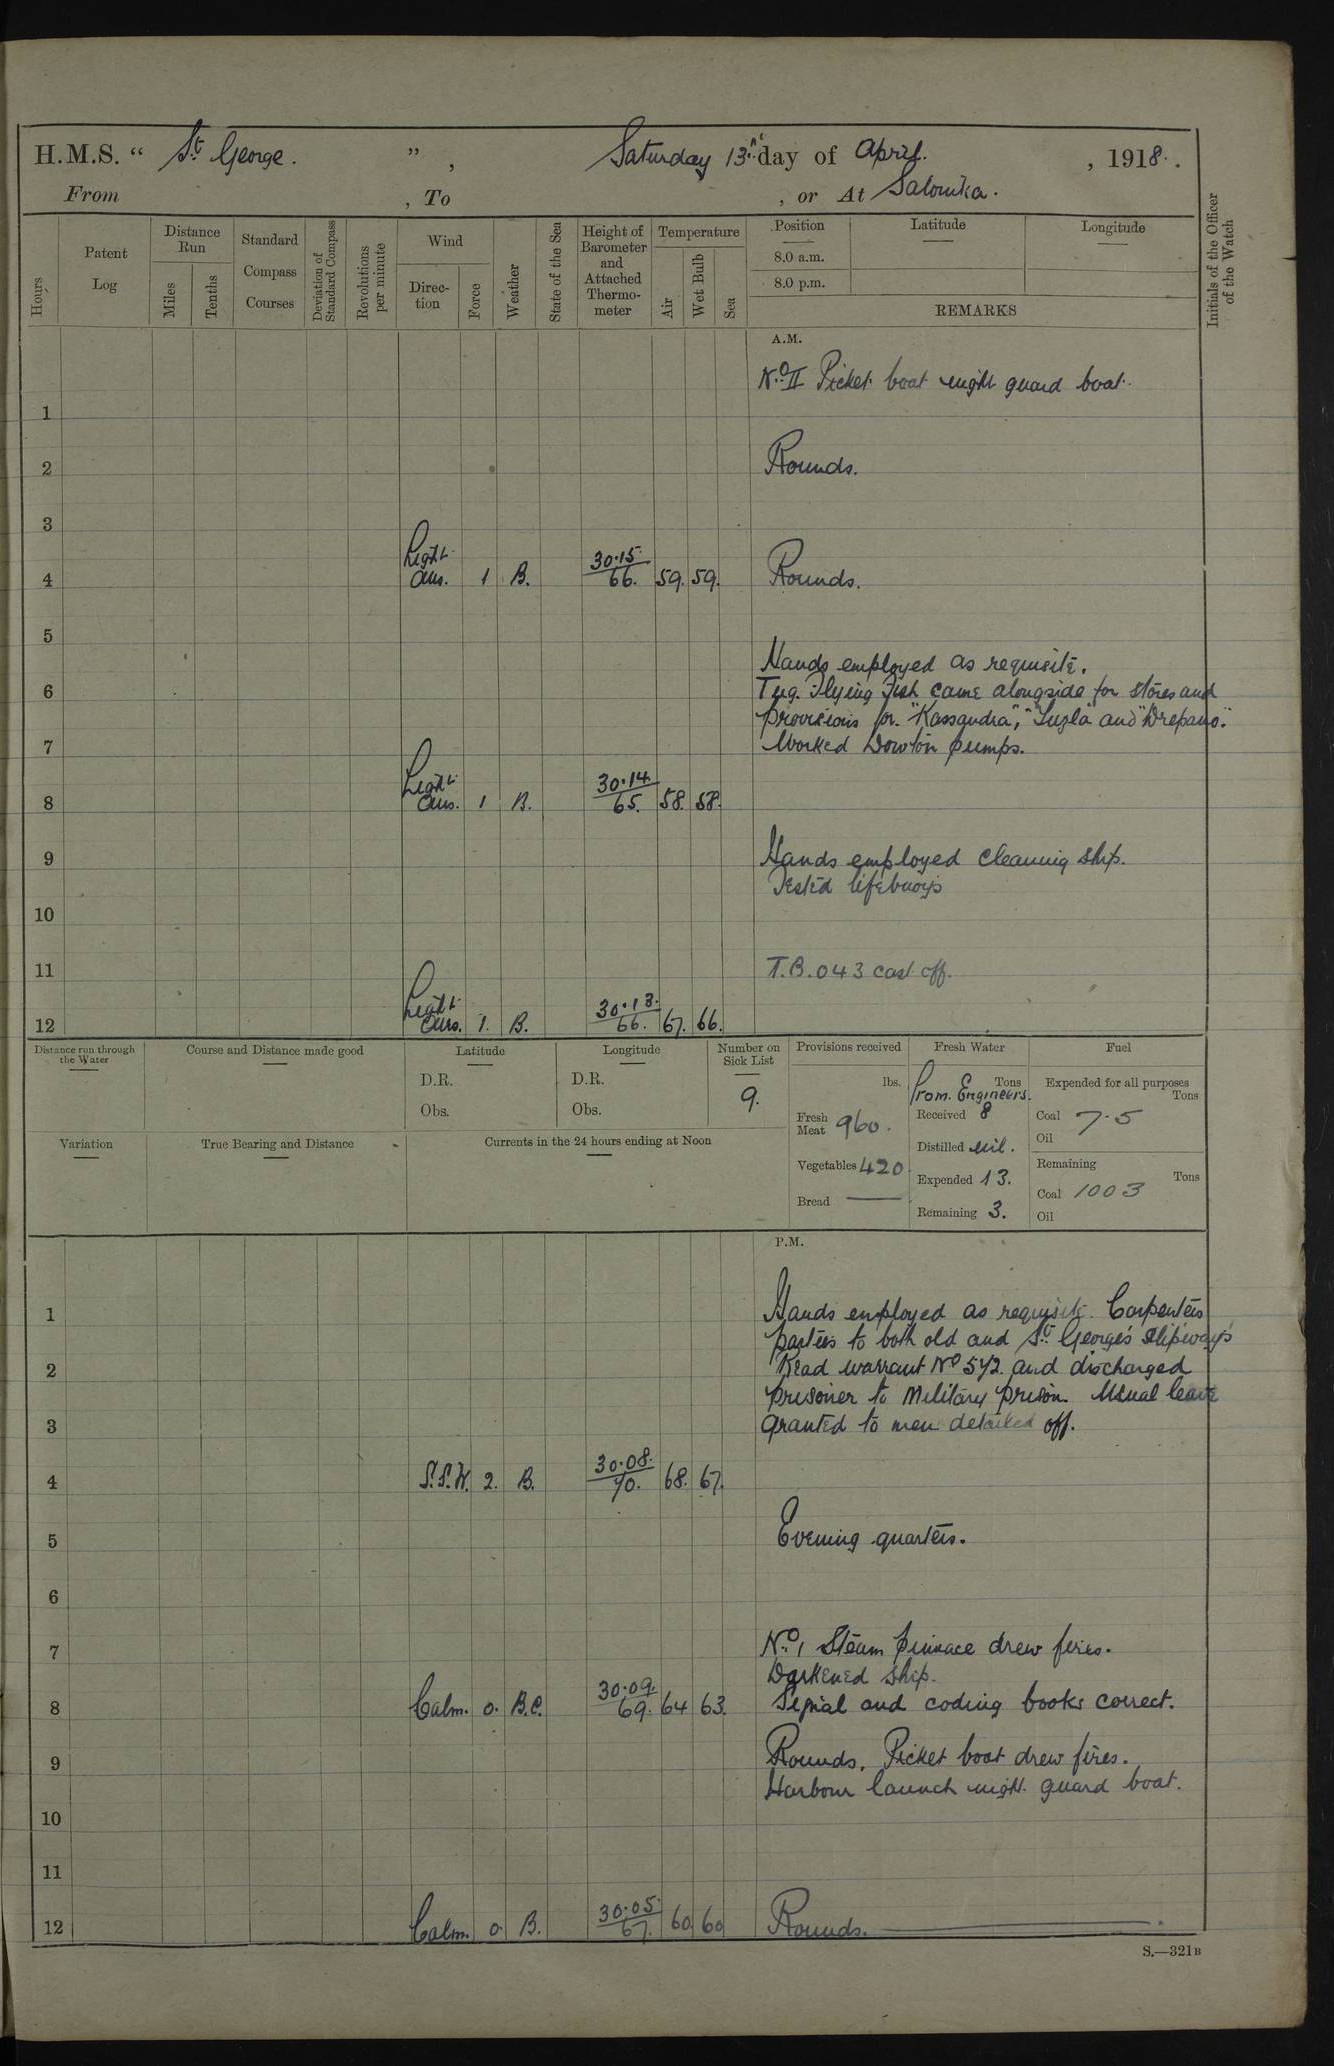 H.M.S. “ St George. ” , Saturday 13th day of April. , 1918.
From , To , or At Salonika.
Hours
Patent Log
Distance Run
Miles
Tenths
Standard Compass Courses
Deviation of Standard Compass
Revolutions per minute
Wind
Direc-tion
Force
Weather
State of the Sea
Height of Barometer and Attached Thermo-meter
Temperature
Air
Wet Bulb
Sea
Position
8.0 a.m.
8.0 p.m.
Latitude
Longitude
REMARKS
Initials of the Officer of the Watch
A.M.
No II Picket boat night guard boat.
1
2 Rounds.
3
4 Light airs. 1 B. 30.15. 66. 59. 59. Rounds.
5
Hands employed as requisite.
6 Tug. Flying Fish came alongside for stores and
provisions for. "Kassandra", "Tuzla" and "Drepano."
7 Worked Downton pumps.
8 Light airs. 1 B. 30.14. 65. 58. 58.
9 Hands employed cleaning ship.
Tested lifebuoys
10
11 T.B. 043 cast off.
12 Light airs. 1. B. 30.13. 66. 67. 66.
Distance run through the Water
Course and Distance made good
Latitude
D.R.
Obs.
Longitude
D.R.
Obs.
Number on Sick List
9.
Provisions received
lbs.
Fresh Meat 960.
Vegetables 420.
Bread —
Fresh Water
Tons
From. Engineers.
Received 8
Distilled Nil.
Expended 13.
Remaining 3.
Fuel
Expended for all purposes
Tons
Coal 7.5
Oil
Remaining
Tons
Coal 1003
Oil
Variation
True Bearing and Distance
Currents in the 24 hours ending at Noon
P.M.
1 Hands employed as requisite. Carpenters
parties to both old and St. George's slipways
2 Read warrant No 572. and discharged
prisoner to Military prison. Usual leave
3 granted to men detailed off.
4 S.S.W. 2. B. 30.08. 70. 68. 67.
5 Evening quarters.
6
7 No 1 Steam pinnace drew fires.
Darkened ship.
8 Calm. 0. B.C. 30.09. 69. 64 63. Signal and coding books correct.
9 Rounds. Picket boat drew fires.
Harbour launch night guard boat.
10
11
12 Calm. 0 B. 30.05. 67. 60 60 Rounds.
S.—321B